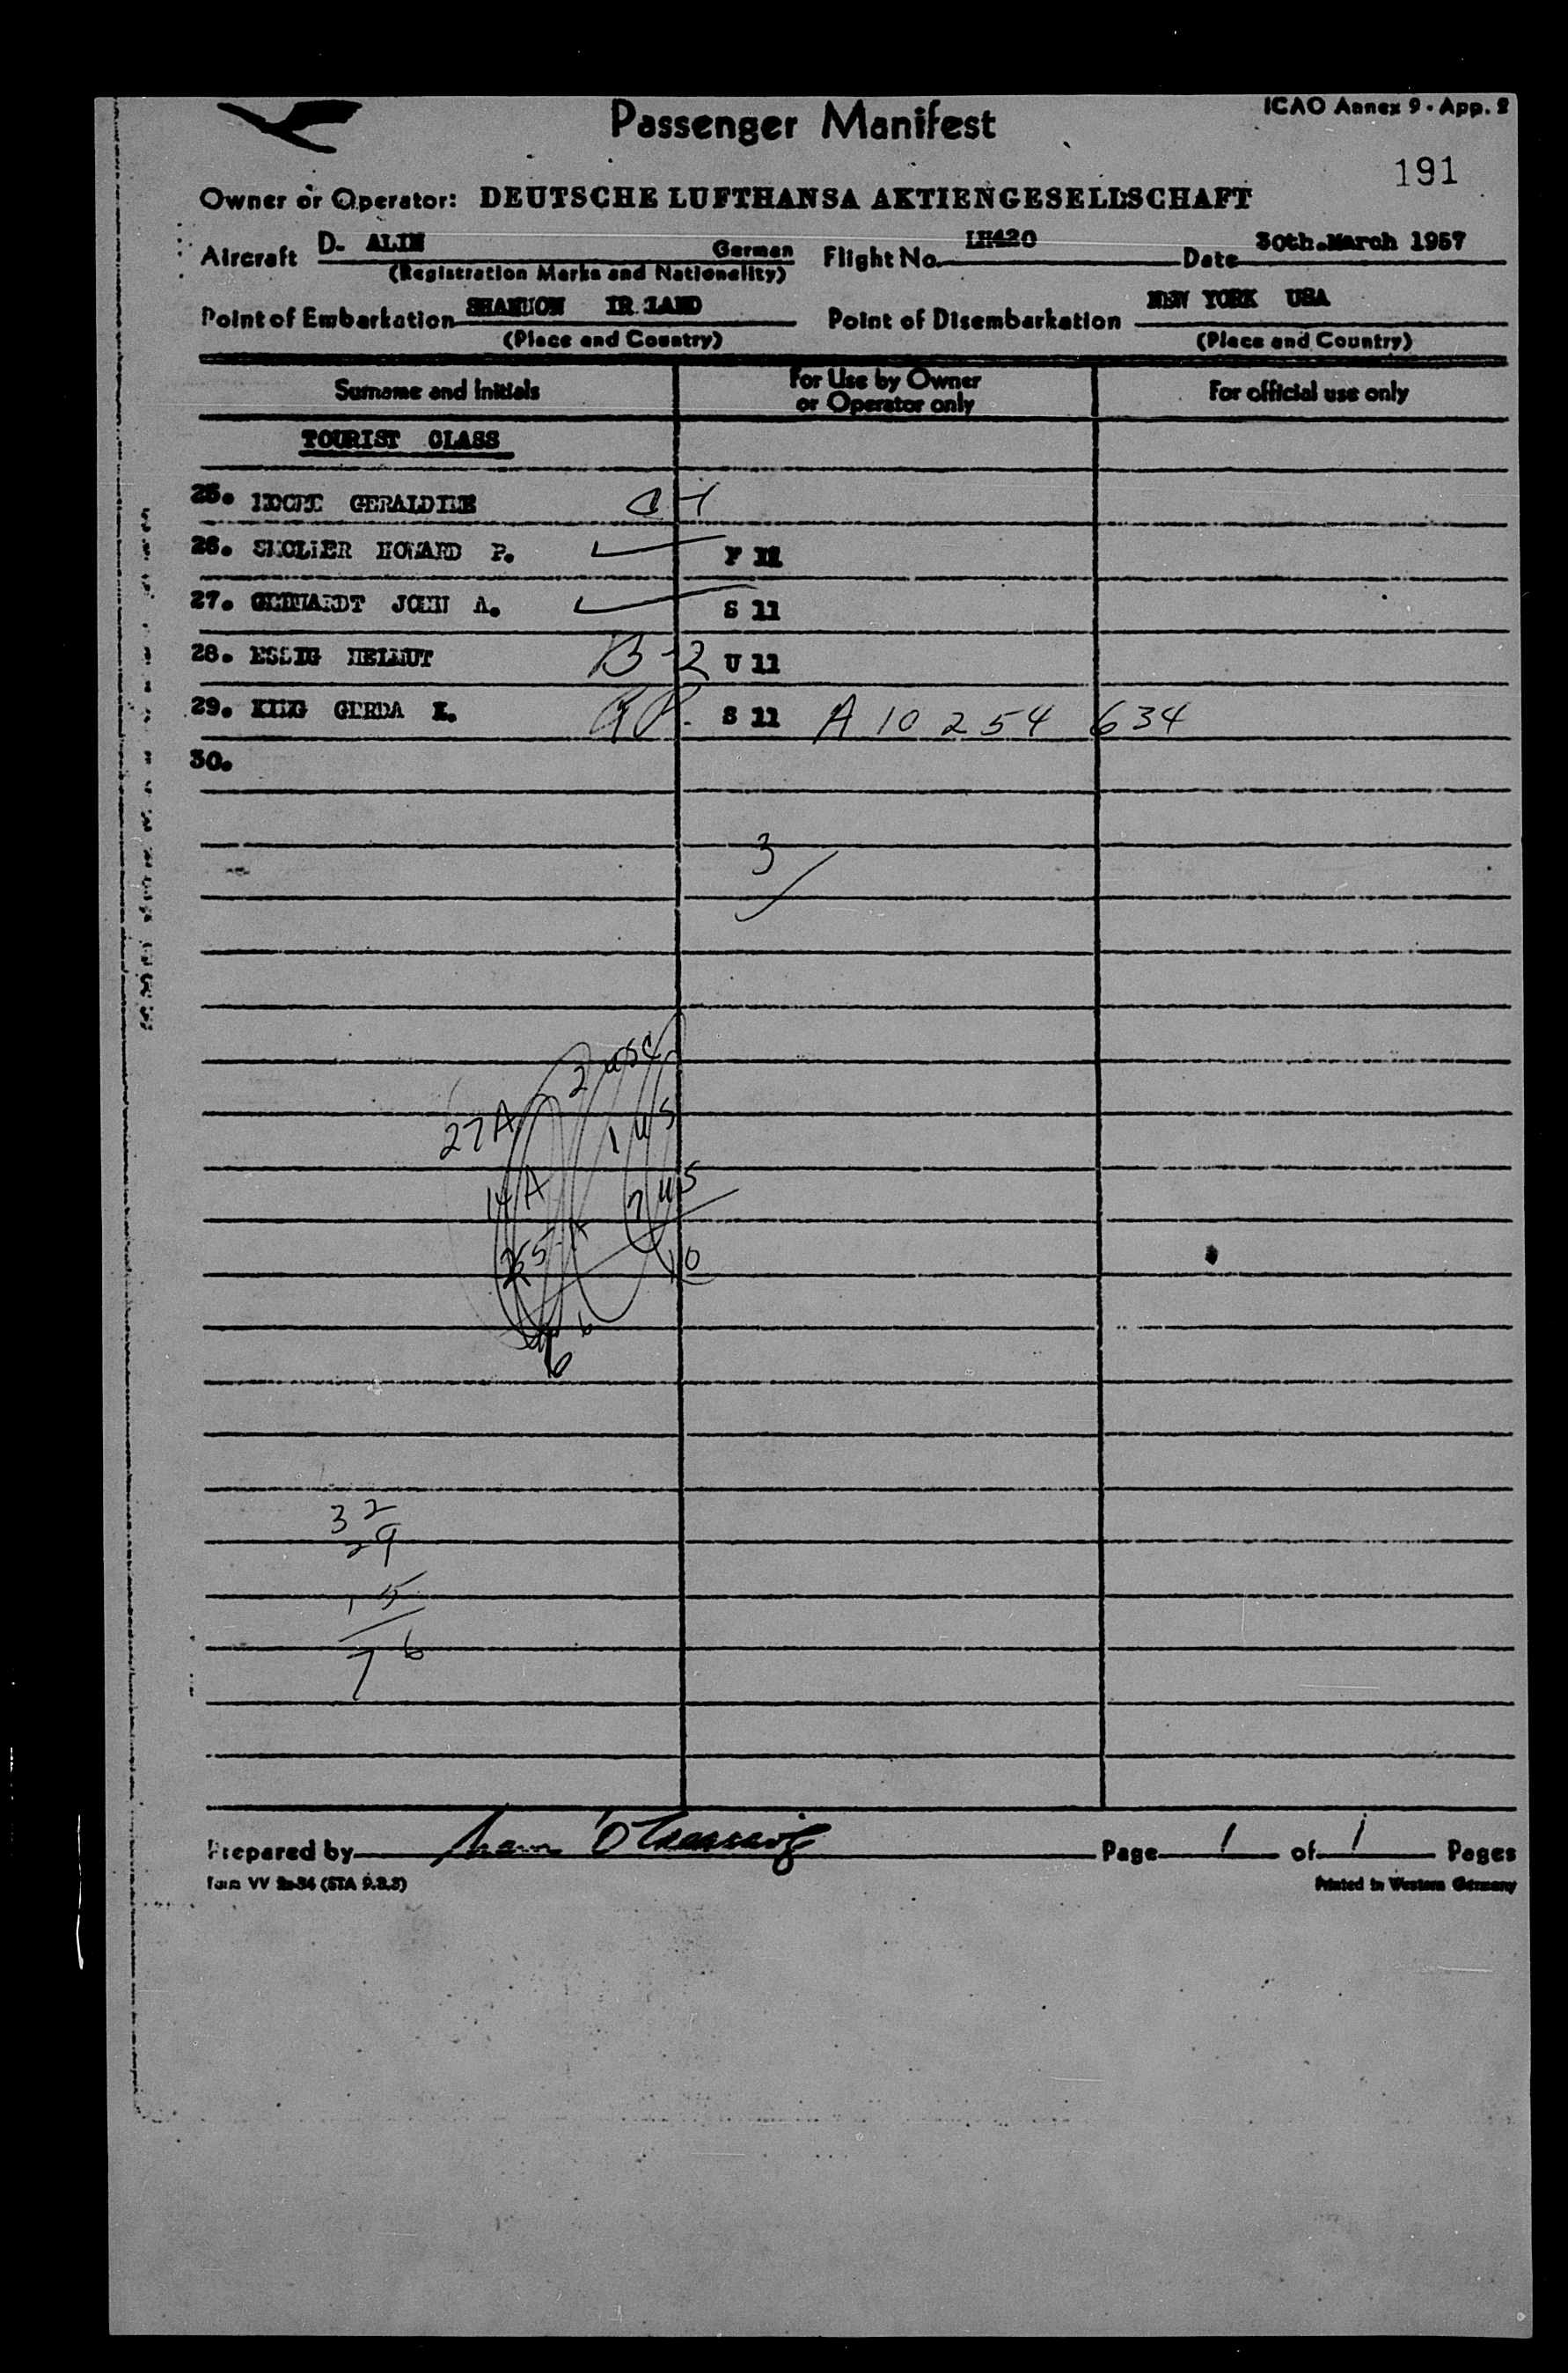 Passenger Manifest
ICAO Annex 9 - App. 2
191
Owner or Operator: DEUTSCHE LUFTHANSA AKTIENGESELLSCHAFT
Aircraft D- ALIN German Flight No. LH420 Date 30th.March 1957
(Registration Marks and Nationality)
Point of Embarkation SHANNON IR LAND Point of Disembarkation NEW YORK USA
(Place and Country) (Place and Country)
Surname and Initials For Use by Owner or Operator only For official use only
TOURIST CLASS
25. GERALDINE
26. HOWARD P. F 11
27. JOHN A. S 11
28. ESSIG HELMUT B-2 U 11
29. KING GERDA S 11 A 10 254 634
30.
3
27A
14A
1 US
7 US
10
6
32
29
15
76
Prepared by Page 1 of 1 Pages
Form VV
Printed in Western Germany